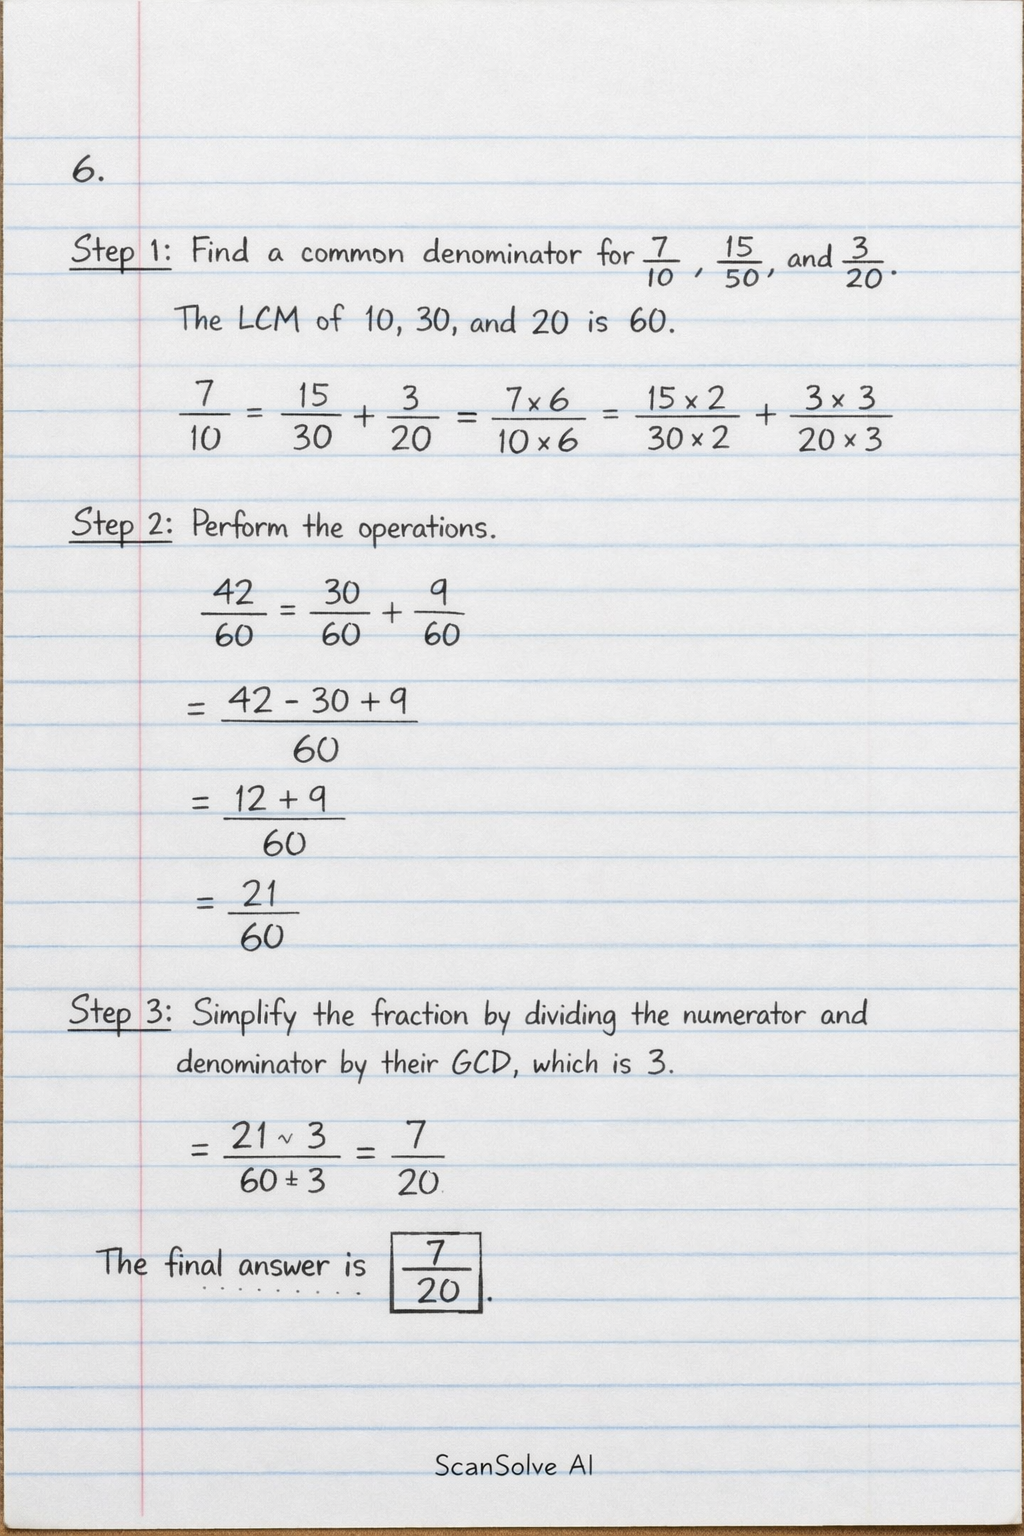 6.
Step 1: Find a common denominator for 7/10, 15/50, and 3/20.
The LCM of 10, 30, and 20 is 60.
7/10 = 15/30 + 3/20 = 7×6/10×6 = 15×2/30×2 + 3×3/20×3
Step 2: Perform the operations.
42/60 = 30/60 + 9/60
= 42 - 30 + 9/60
= 12 + 9/60
= 21/60
Step 3: Simplify the fraction by dividing the numerator and
denominator by their GCD, which is 3.
= 21 ~ 3/60 ± 3 = 7/20
The final answer is 7/20.
ScanSolve AI